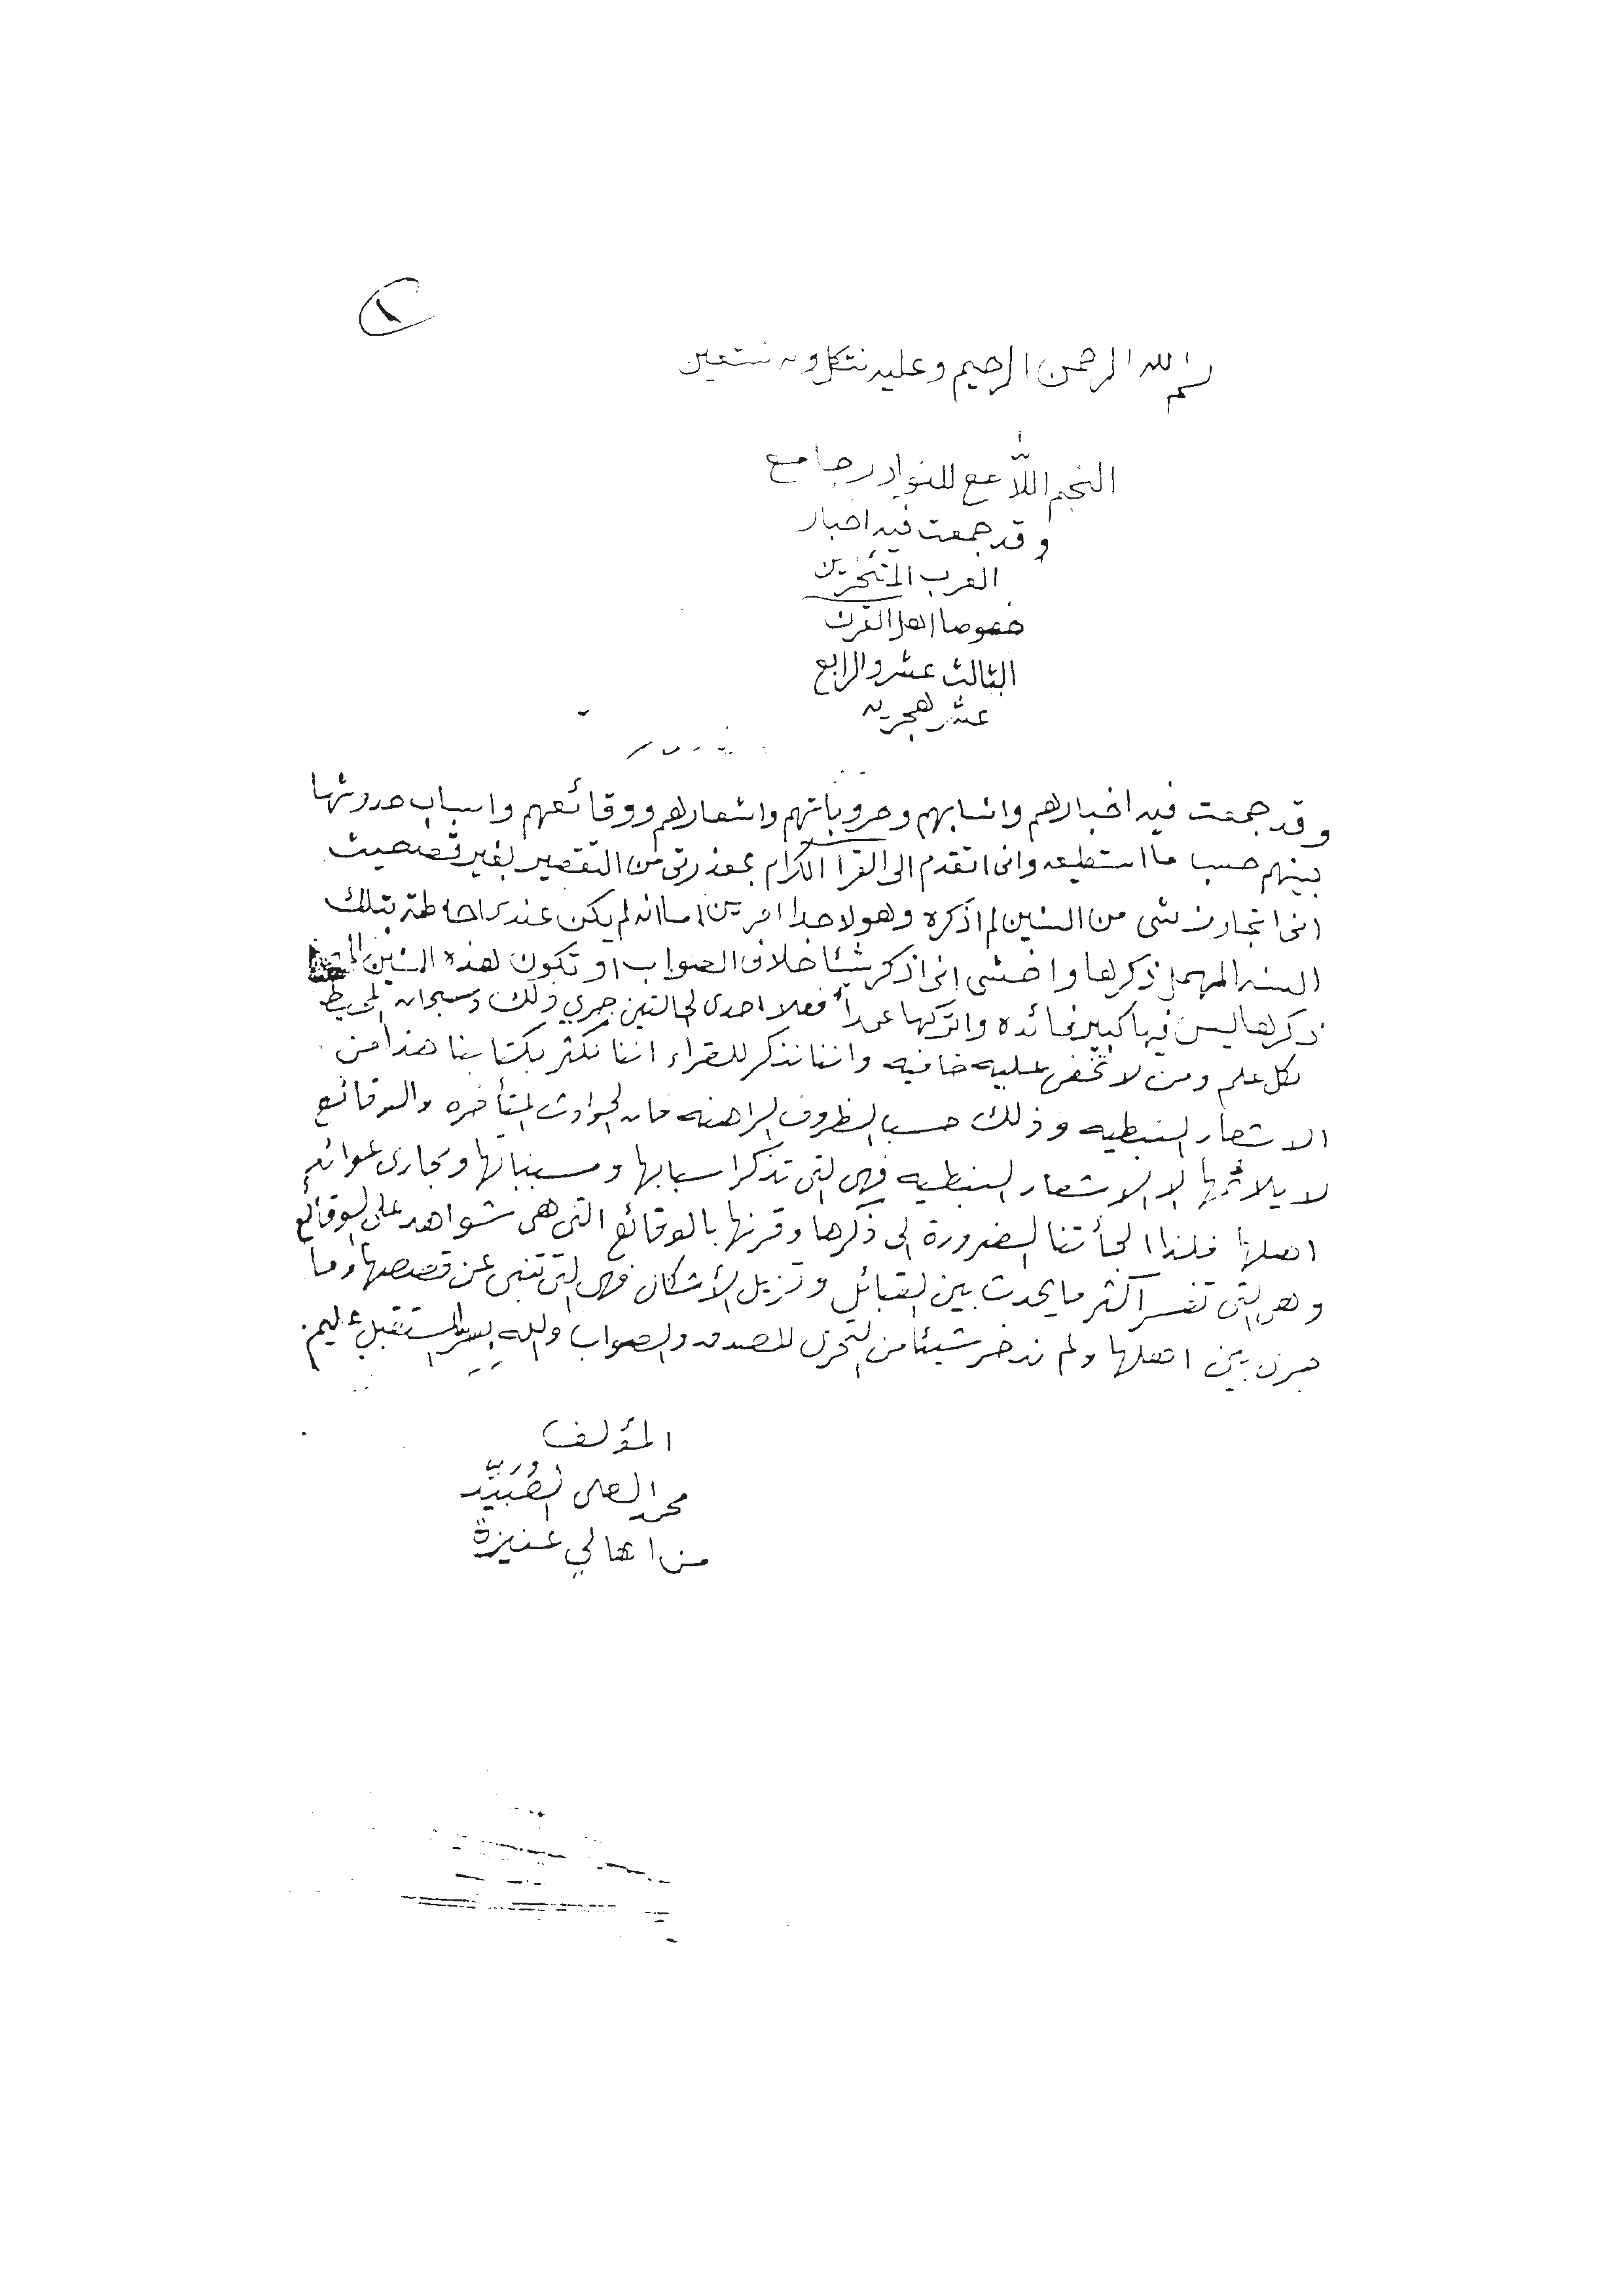 ١
بسم الله الرحمن الرحيم وعليه نتكل وبه نستعين
النجم اللامع للنوادر جامع
وقد جمعت فيه اخبار
العرب المتئخرين
خصوصا اهل القرن
الثالث عشر والرابع
عشر هجريه
وقد جمعت فيه اخبارهم وانسابهم وحروباتهم واشعارهم ووقائعهم واسباب حدوثها
بينهم حسب ما استطيعه وانى اتقدم الى القرا الكرام بمعذرتى من التقصير بغير قصد حيث
انى اتجاوز شى من السنين لم اذكره وهو لاحدا امرين اما انه لم يكن عندى احاطة بتلك
السنه المهمل ذكرها واخشى انى اذكر شيئا خلاف الصواب او تكون هذه السنين
ذكرها ليس فيها كبير فائده واتركها عمداً فعلا احدى الحالتين جرى ذلك وسبحان المحيط
بكل علم ومن لا تخفى عليه خافيه واننا نذكر للقراء اننا نكثر بكتابنا هذا من
الاشعار النبطيه وذلك حسب الظروف الراهنه فان الحوادث المتأخره والوقائع
لا يلائمها الا الاشعار النبطيه فهى التى تذكر اسبابها ومسبباتها ومجارى عوائد
اهلها فلذا الجأتنا الضرورة الى ذكرها وقرنها بالوقائع التى هى شواهد على الوقائع
وهى التى تفسر اكثر ما يحدث بين القبائل وتزيل الأشكال فهى التى تنبى عن قصصها وما
جرى بين اهلها ولم ندخر شيئا من التحرى للصدق والصواب والله بسر المستقبل عليم.
المؤلف
محمد العلى العُبَيِّد
من اهالي عنيزة